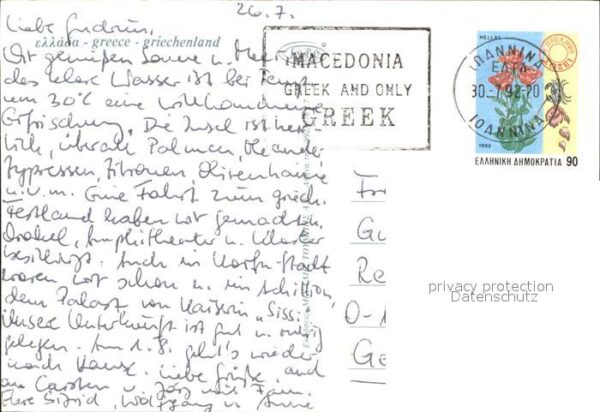 26.7.
Liebe Gudrun,
ελλάδα - greece - griechenland
Wir genießen Sonne u. Meer,
das klare Wasser ist bei Temp.
um 30°C eine willkommene
Erfrischung. Die Insel ist herr-
lich, überall Palmen, Oleander
Zypressen, Zitronen, Olivenbäume
u.v.m. Eine Fahrt zum griech.
Festland haben wir gemacht u.
Orakel, Amphitheater u. Kloster
besichtigt. Auch in Korfu-Stadt
waren wir schon u. im Achilleion,
dem Palast von Kaiserin "Sissi".
Unsere Unterkunft ist gut u. ruhig
gelegen. Am 1.8. geht's wieder
nach Hause. Liebe Grüße auch
an Carsten u. Jörg mit Fam.
Eure Sigrid, Wolfgang u. Anne
MACEDONIA
GREEK AND ONLY
GREEK
ΙΩΑΝΝΙΝΑ
30-7.92-20
ΙΩΑΝΝΙΝΑ
HELLAS
1992
ΕΛΛΗΝΙΚΗ ΔΗΜΟΚΡΑΤΙΑ 90
Gu
Re
O-
Ge
privacy protection
Datenschutz